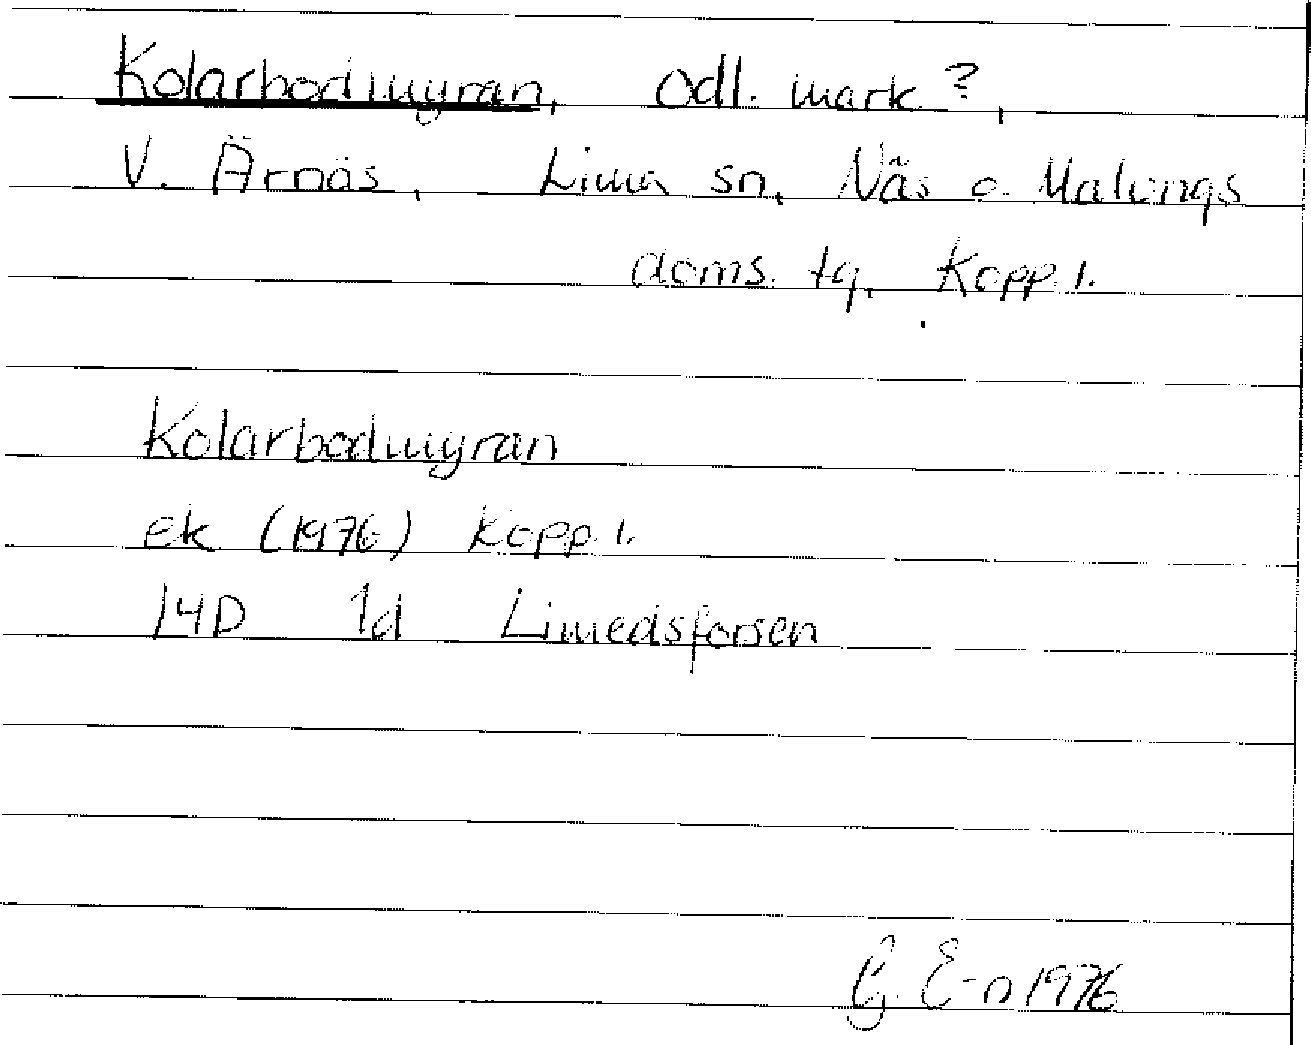 Kolarbodmyran, odl. mark?,
V. Ärnäs, Lima sn, Näs o. Malungs
doms. tg, Kopp. l.
Kolarbodmyran
ek (1976) Kopp. l.
14D 1d Limedsforsen
G. E-n 1976